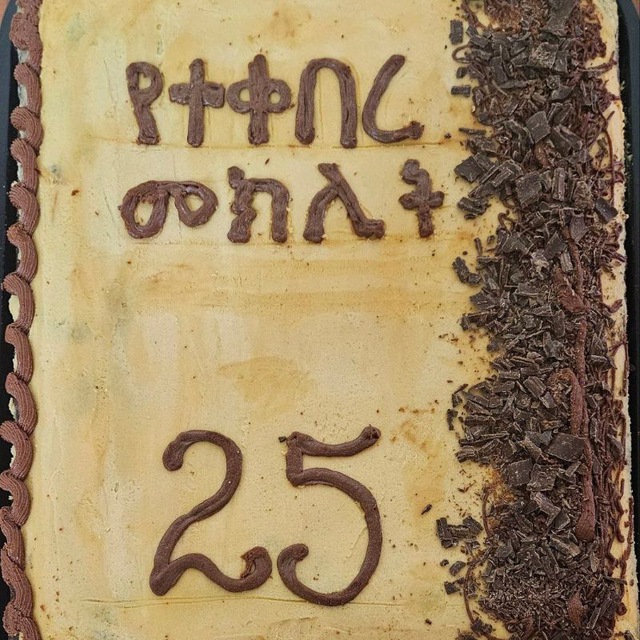 የተቀበረ
መክሊት
25